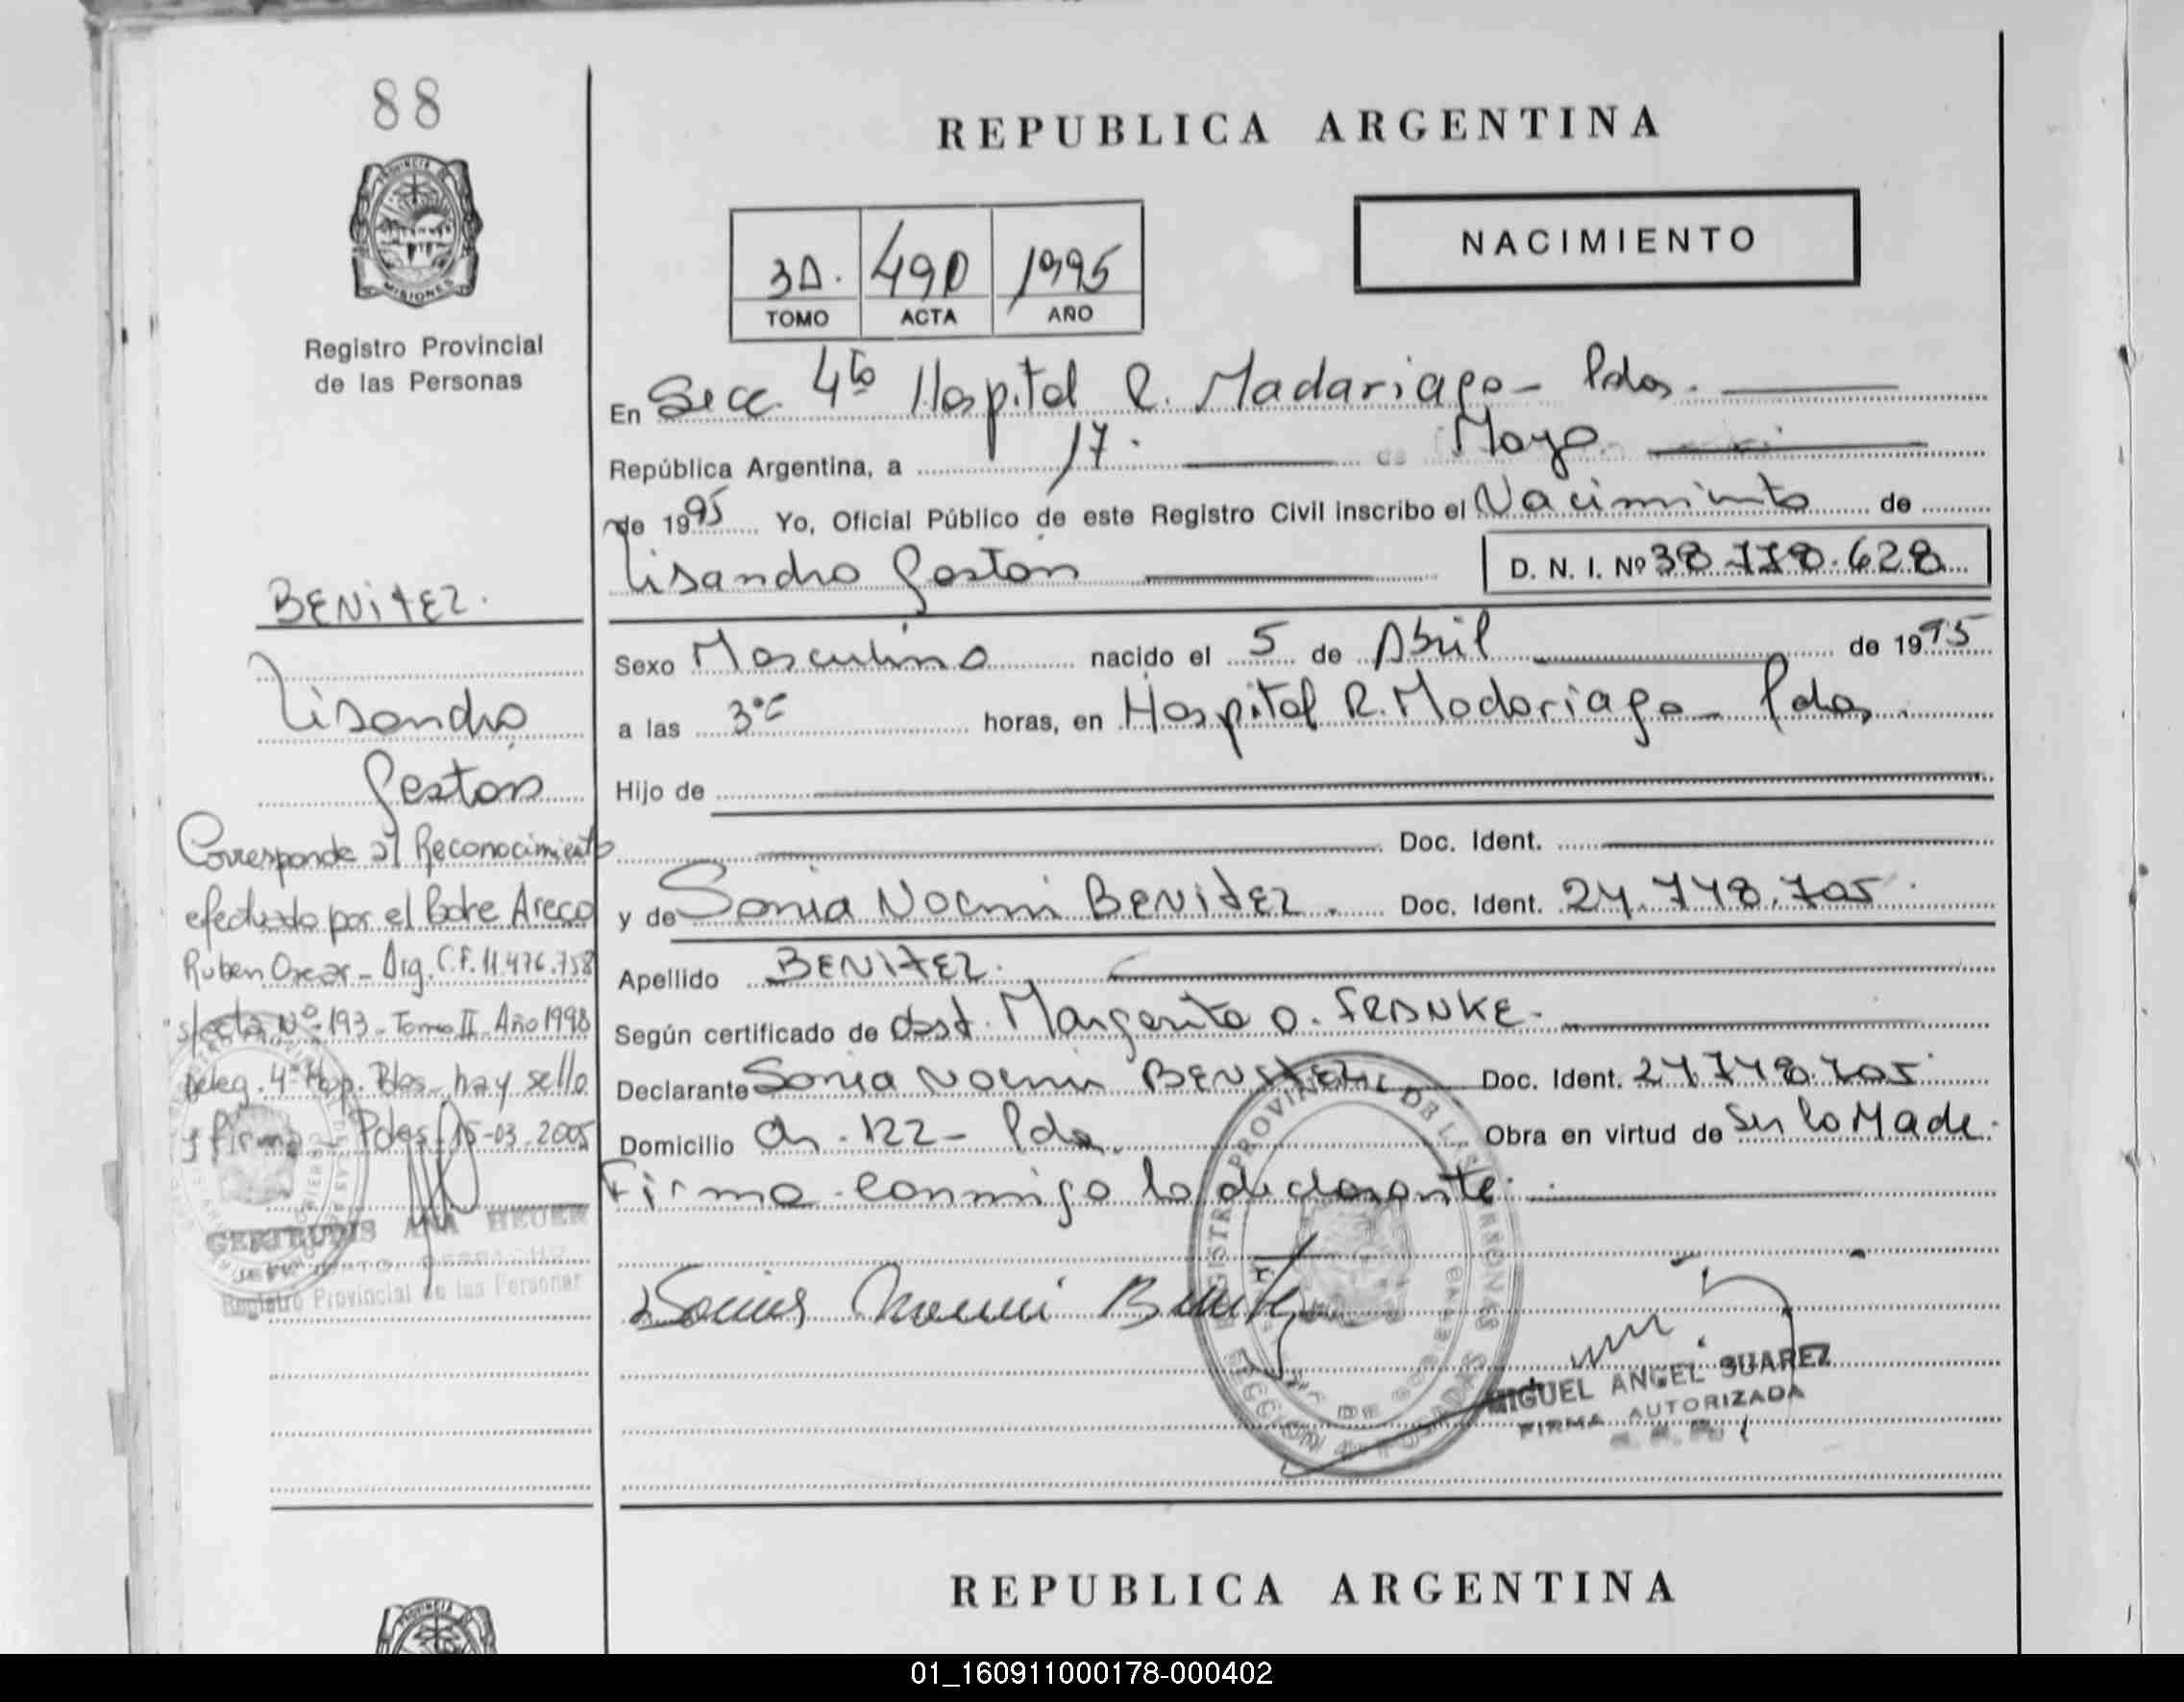 88
PROVINCIA DE
MISIONES
Registro Provincial
de las Personas
REPUBLICA ARGENTINA
NACIMIENTO
490 1995
TOMO ACTA AÑO
En Secc. 4to Hospital R. Madariaga - Pdas.
República Argentina, a 17 de Mayo
de 1995 Yo, Oficial Público de este Registro Civil inscribo el Nacimiento de
Lisandro Gastón
D. N. I. Nº 38.778.628
Sexo Masculino nacido el 5 de Abril de 1995
a las horas, en Hospital R. Madariaga - Pdas.
Hijo de
Doc. Ident.
y de Sonia Noemi BENITEZ. Doc. Ident. 24.748.705
Apellido BENITEZ.
Según certificado de obst. Margarita O. FRANKE.
Declarante Sonia Noemi BENITEZ Doc. Ident. 24.748.705
Domicilio Ch. 122 - Pdas. Obra en virtud de Ser la Madre.
Firma conmigo la declarante.
Sonia Noemi Benitez
REGISTRO PROVINCIAL DE LAS PERSONAS
MIGUEL ANGEL SUAREZ
FIRMA AUTORIZADA
BENITEZ.
Lisandro
Gastón
Corresponde al Reconocimiento
efectuado por el Padre Areco
Ruben Oscar - Arg. C.F. 11.476.758
s/acta Nº 193 - Tomo II - Año 1998
Deleg. 4º Hop. Pdas - hay sello
y firma - Pdas 15-03-2005
GERTRUDIS ANA HEUER
Registro Provincial de las Personas
REPUBLICA ARGENTINA
PROVINCIA
01_160911000178-000402